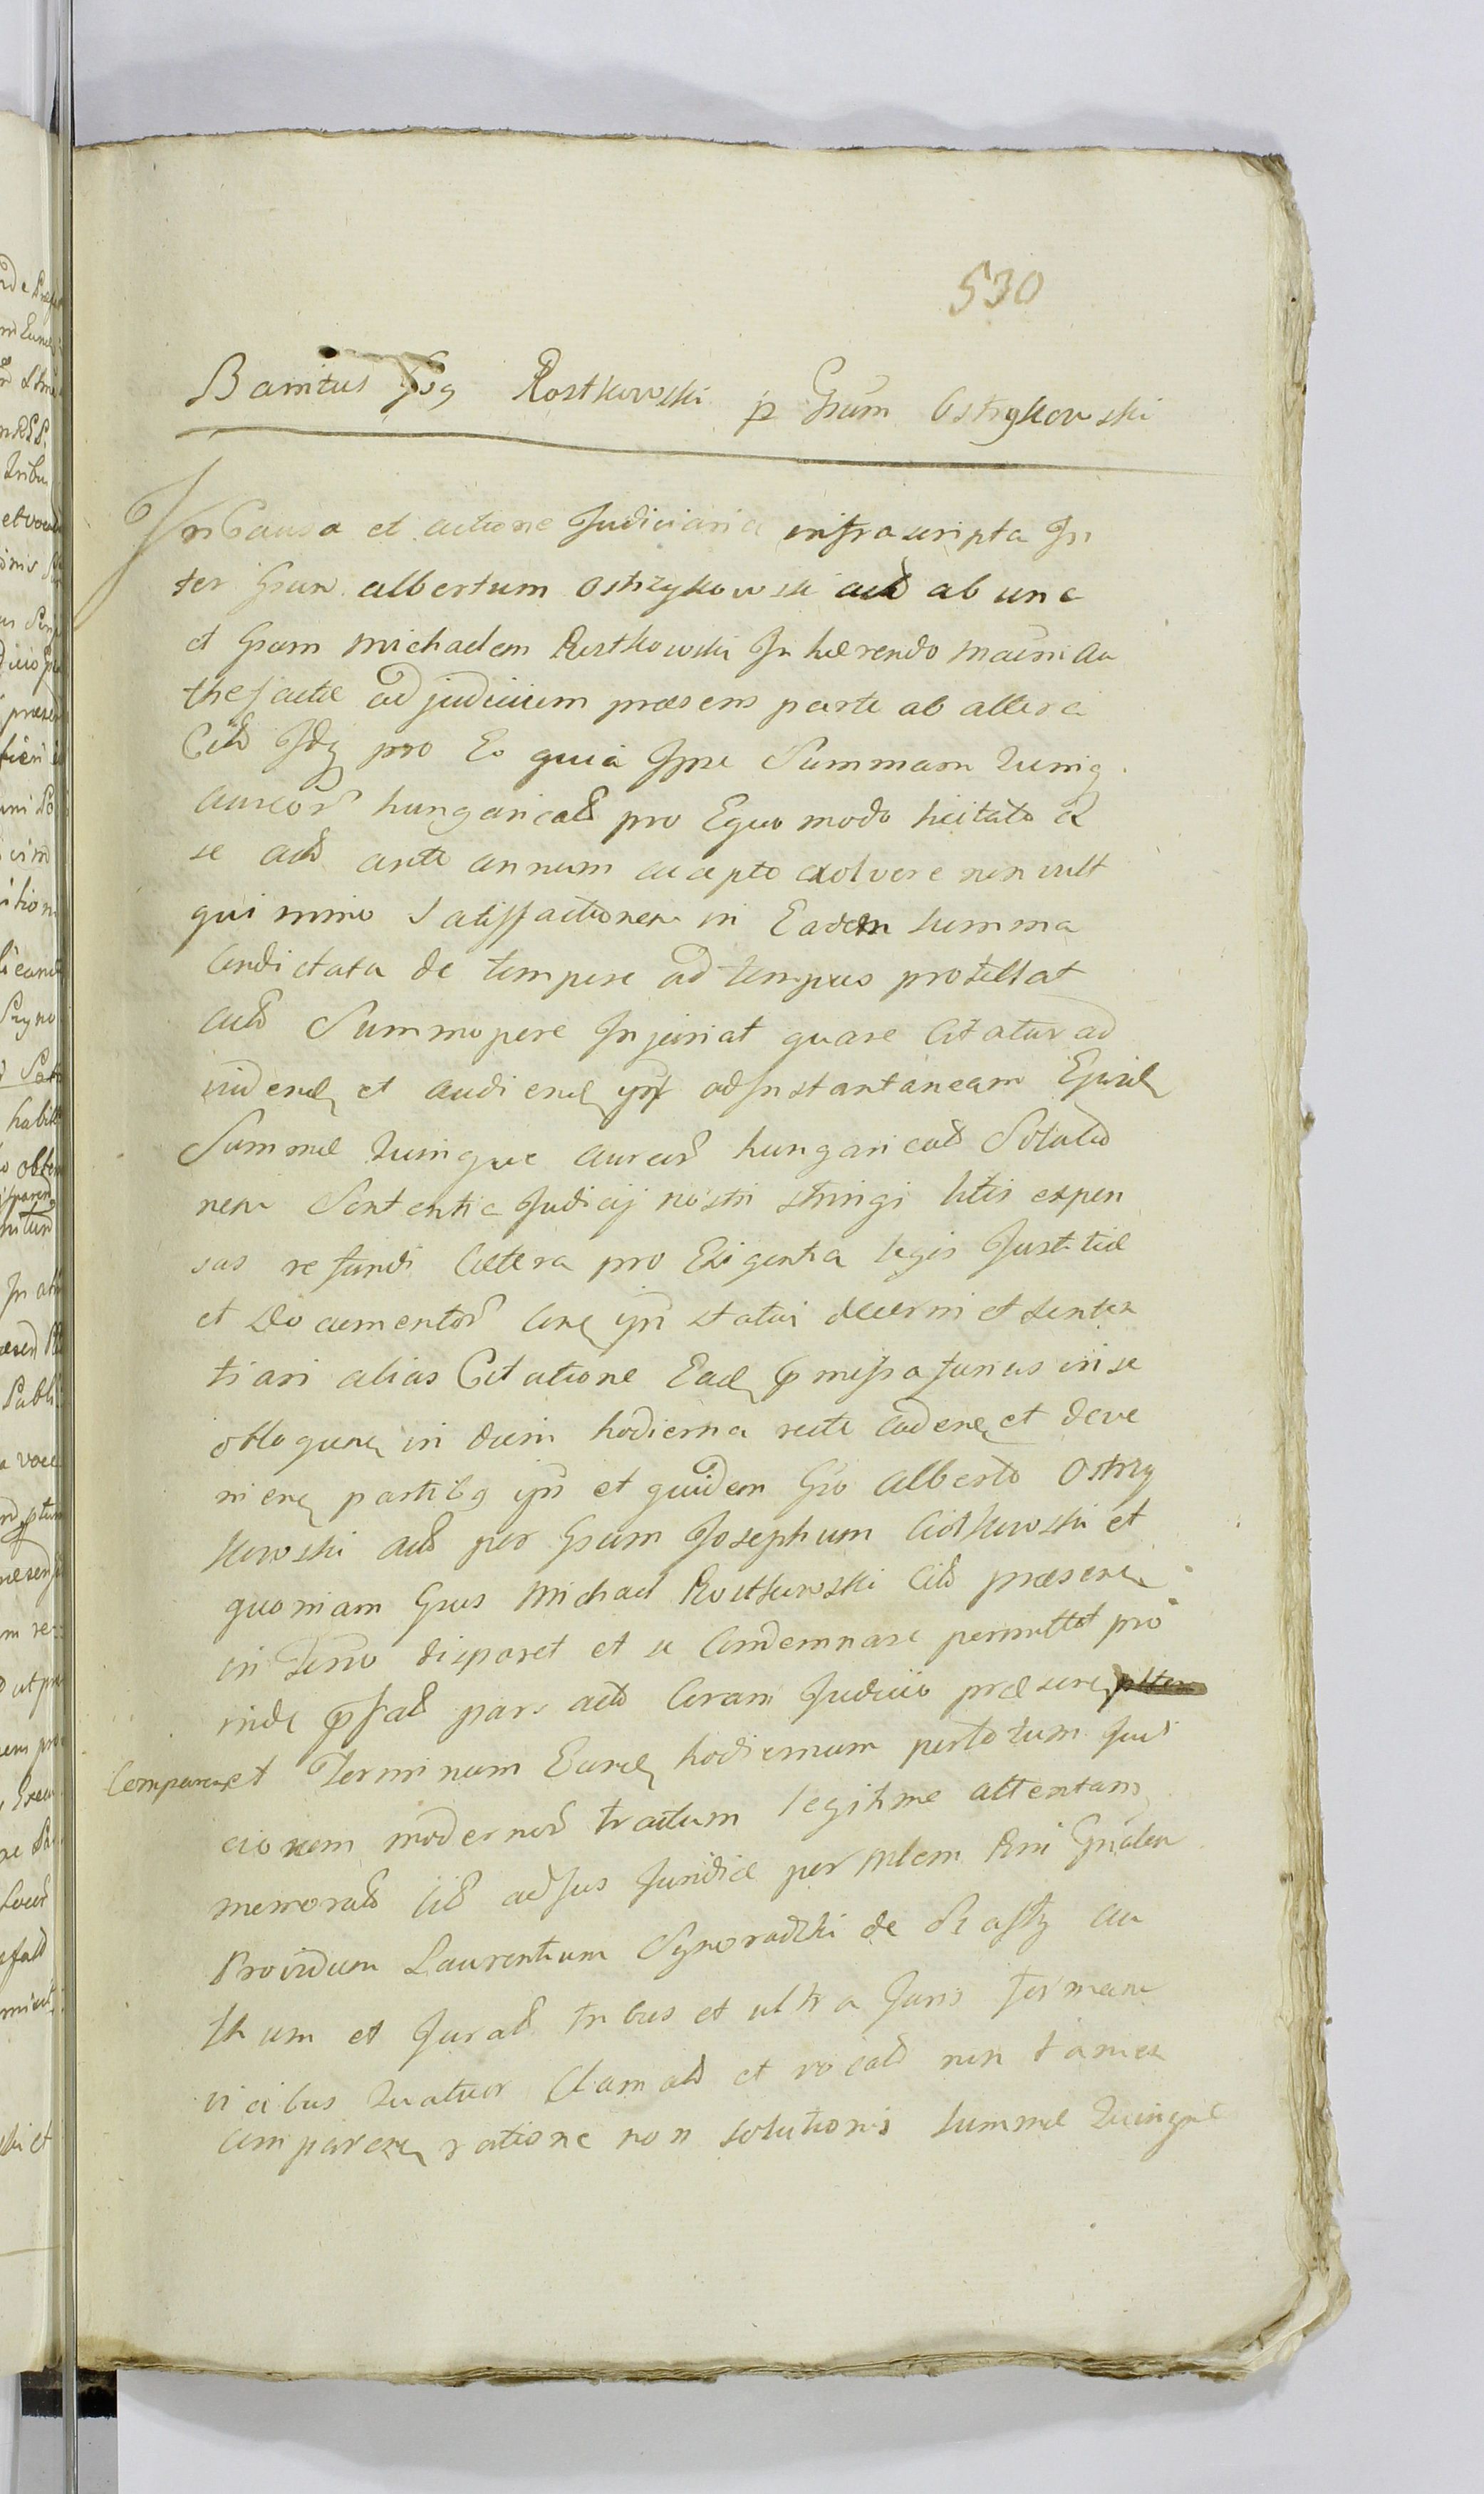 530
Banitus Gsg Rostkowski p Gsum Ostrykowski
In Causa et actione Judiciaria infrascripta In
ter Gsum albertum Ostrzykowski actd ab una
et Gsum Michaelem Rostkowski In hærendo
the factæ ad judicium præsens parte ab altera
Citd Idq pro Eo quia Ipse Summam Quinq
aureor hungaricald pro Equo modo licitato a
se actd ante annum accepto exolvere non vult
qui nimo Satisfactionem in Eadem summa
Condictata de tempore ad tempus protellat
actd Summopere Injuriat quare Citatur ad
vidend et audiend ipn ad Instantaneam Ejusd
Summæ Quinque aureor hungaricald Solutio
nem Sententia Judicij nostri stringi litis expen
sas refundi Cætera pro Exigentia legis Justitiæ
et Documentor Cone ipn statui decerni et senten
tiari alias Citatione Ead præmissa fusius in se
obloquen in diem hodierna recte caden et deve
nien partibq ipn et quidem Gso Alberto Ostrzy
kowski actd per Gsum Josephum Ciołkowski et
quoniam Gsus Michael Rostkowski Citd præsen
in Termo disparet et se Condemnare permittit pro
inde præfatd pars actd Coram Judicio præsen
Comparen et Terminum Eund hodiernum per totum Judi
ciorum modernord tractum legitime attentans
memoratd Citd ad Jus Juridice per Mlem Rni Gnalem
Providum Laurentium Synoradzki de
thum et Juratd tribus et ultra Juris formam
vicibus Quatuor Clamatd et vocatd non tamen
comparen ratione non solutionis summæ Quinque